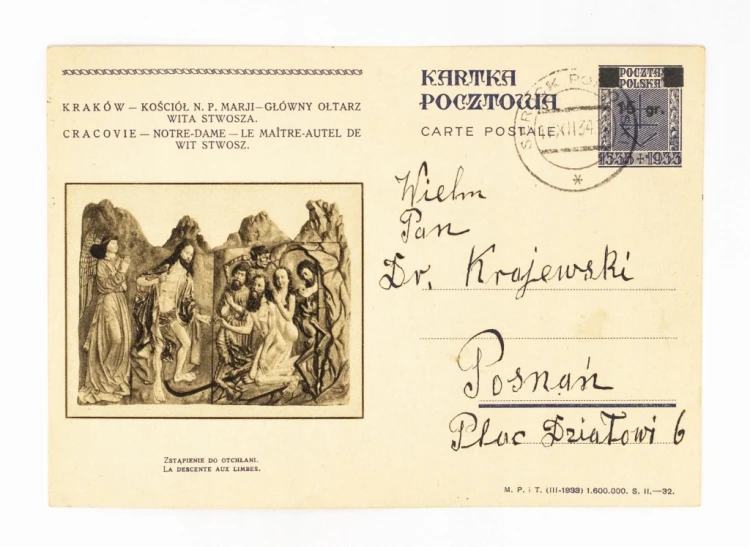 KRAKÓW — KOŚCIÓŁ N. P. MARJI — GŁÓWNY OŁTARZ
WITA STWOSZA.
CRACOVIE — NOTRE-DAME — LE MAÎTRE-AUTEL DE
WIT STWOSZ.
ZSTĄPIENIE DO OTCHŁANI.
LA DESCENTE AUX LIMBES.
KARTKA
POCZTOWA
CARTE POSTALE
POCZTA
POLSKA
15 gr.
1533+1933
XII 34
Wielm
Pan
Dr. Krajewski
Posnań
Plac Działowi 6
M. P. i T. (III-1933) 1.600.000. S. II.—32.